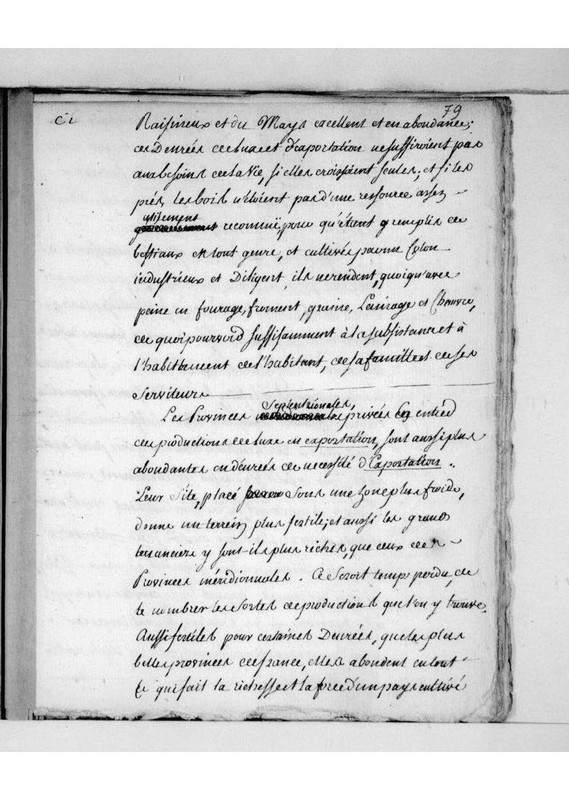 79
Raisineux et du Mays excellent et en abondance;
ces Denrées de luxe et d'exportation ne suffiroient pas
aux besoins de la Vie, si elles croissoient seules, et si les
prés, les bois n'étoient pas d'une ressource assez
utilement reconnue, pour qu'étant remplis de
bestiaux en tout genre, et cultivés par un Colon
industrieux et Diligent, ils ne rendent, quoiqu'avec
peine en fourage, froment, graine, Lainage et Chanvre,
de quoi pourvoir suffisamment à la subsistance et à
l'habillement de l'habitant, de sa famille et de ses
Serviteurs
Les Provinces Septentrionales, privées en
ces productions de luxe en exportation, sont aussi plus
abondantes en denrées de necessité d'Exportation.
Leur Site, placé sous une zone plus froide,
donne un terrein plus fertile; et aussi les grands
tenanciers y sont-ils plus riches, que ceux des
Provinces méridionales. Ce seroit temps perdu, de
te nombrer les sortes de productions que l'on y trouve.
Aussi fertiles pour certaines Denrées, que les plus
belles provinces de france, elles abondent en tout
ce qui fait la richesse et la force d'un pays cultivé